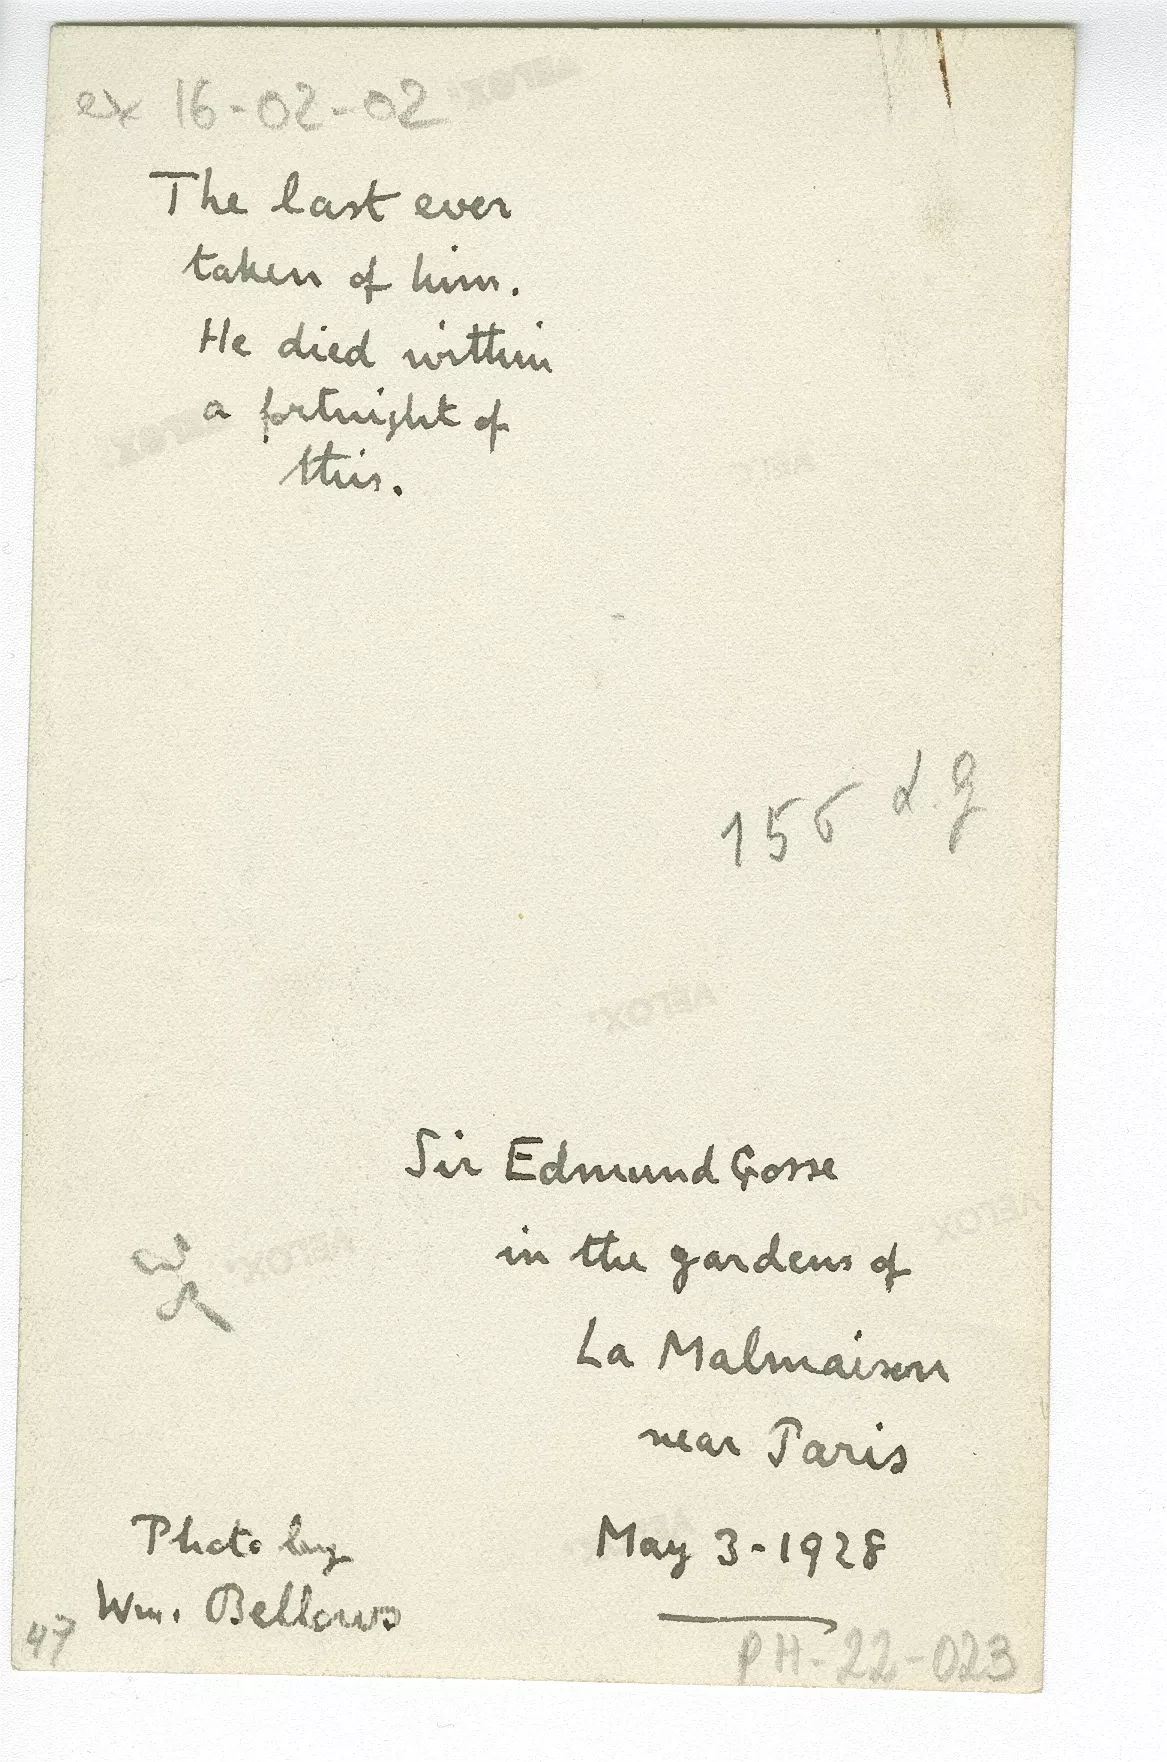 ex 16-02-02
The last ever
taken of him.
He died within
a fortnight of
this.
155 d.g
VELOX
Sir Edmund Gosse
in the gardens of
La Malmaison
near Paris
May 3-1928
Photo by
Wm. Bellows
47
PH-22-023